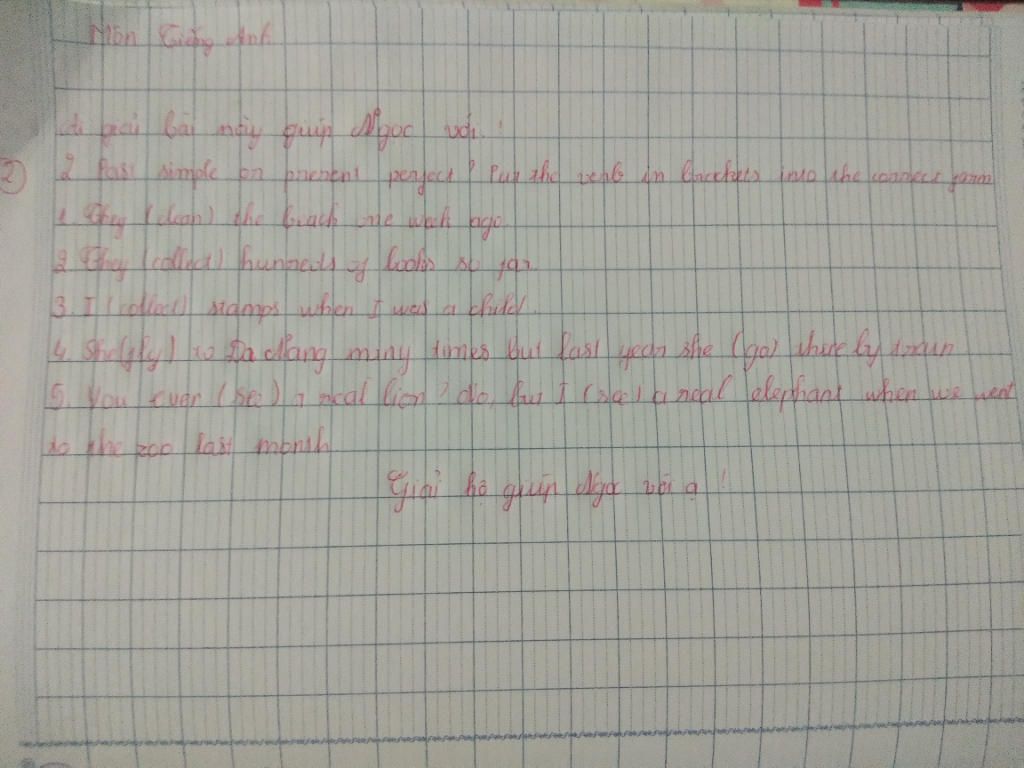 Môn Tiếng Anh
giải bài này giúp Ngọc với !
2 Past simple or present perfect ? Put the verb in brackets into the correct form
1. They (clean) the beach one week ago.
2. They (collect) hundreds of books so far.
3. I (collect) stamps when I was a child.
4. She (fly) to Da Nang many times but last year she (go) there by train
5. You ever (see) a real lion ? No, but I (see) a real elephant when we went
to the zoo last month.
Giải hộ giúp Ngọc với ạ !
2